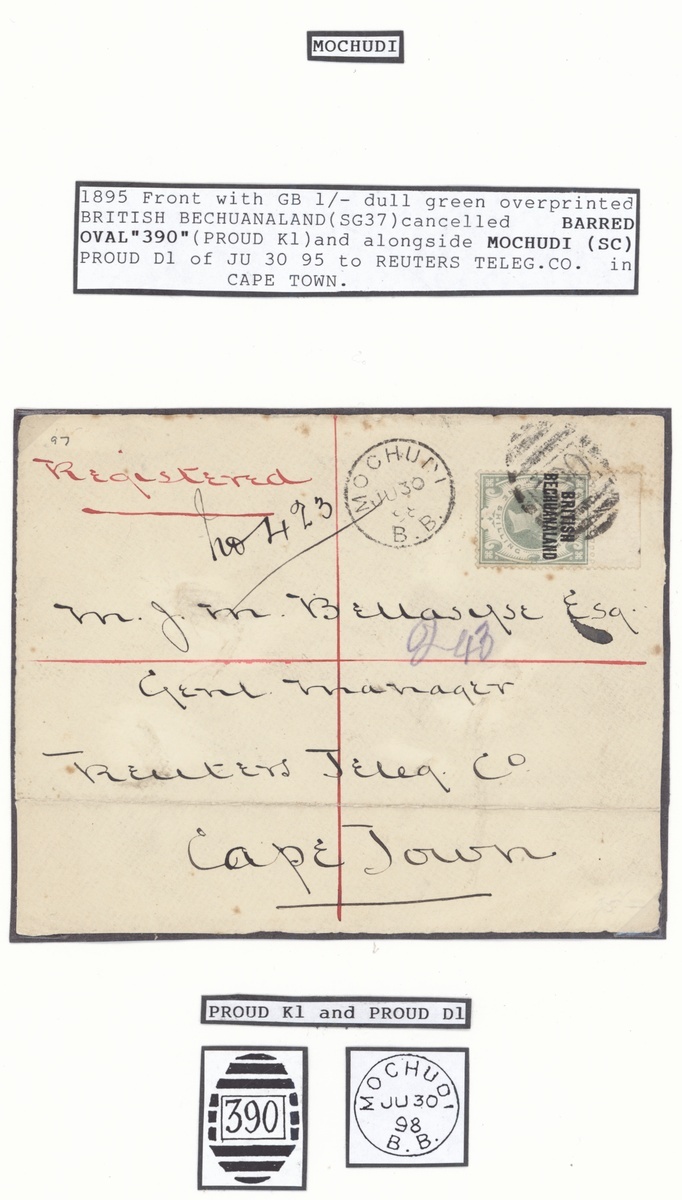 MOCHUDI
1895 Front with GB 1/- dull green overprinted
BRITISH BECHUANALAND(SG37)cancelled BARRED
OVAL"390"(PROUD K1)and alongside MOCHUDI (SC)
PROUD D1 of JU 30 95 to REUTERS TELEG.CO. in
CAPE TOWN.
97
Registered
No 423
MOCHUDI
JU 30
B.B.
BRITISH
BECHUANALAND
SHILLING
M. J. M. Bellasyse Esq.
43
Genl. Manager
Reuters Teleg. Co
Cape Town
PROUD K1 and PROUD D1
390
MOCHUDI
JU 30
98
B.B.